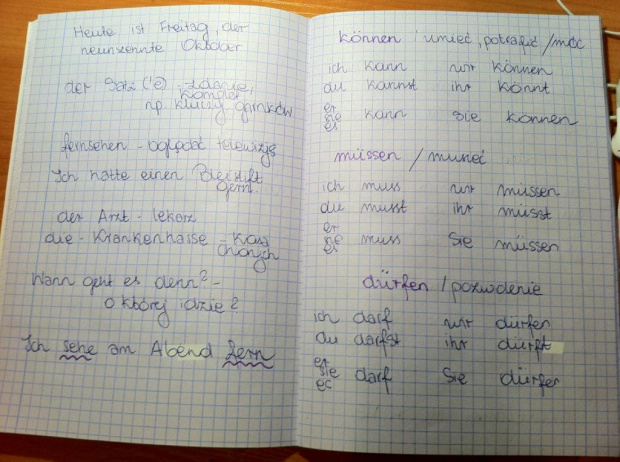 Heute ist Freitag, der
neunzehnte Oktober
der Satz (¨e) - zdanie,
komplet
np. kluczy garnków
fernsehen - oglądać telewizję
Ich hätte einen Bleistift
gern.
der Arzt - lekarz
die - Krankenkasse - kasa
chorych
Wann geht es denn? -
O której idzie?
Ich sehe am Abend fern
können / umieć, potrafić / móc
ich kann wir können
du kannst ihr könnt
er
sie kann Sie können
es
müssen / musieć
ich muss wir müssen
du musst ihr müsst
er
sie muss Sie müssen
es
dürfen / pozwolenie
ich darf wir dürfen
du darfst ihr dürft
er
sie darf Sie dürfen
es